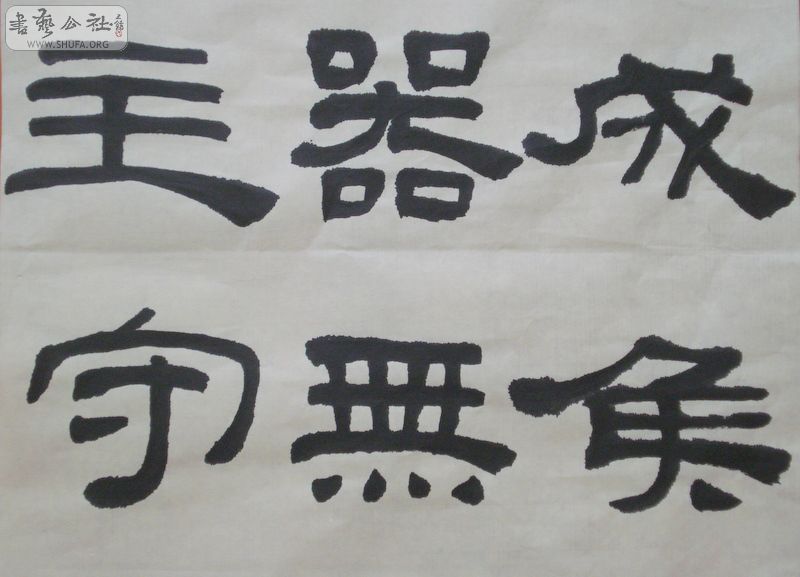 書藝公社
www.SHUFA.ORG
成
器無
主守